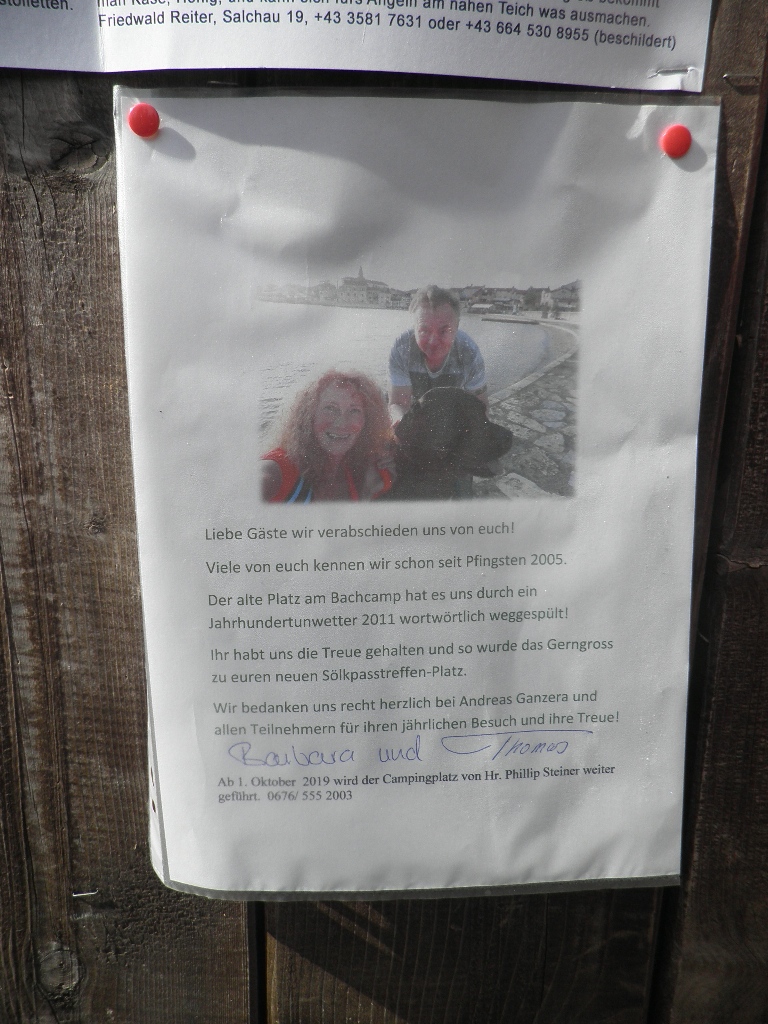 stoiletten.
man Käse, Honig, und kann sich fürs Angeln am nahen Teich was ausmachen.
Friedwald Reiter, Salchau 19, +43 3581 7631 oder +43 664 530 8955 (beschildert)
Liebe Gäste wir verabschieden uns von euch!
Viele von euch kennen wir schon seit Pfingsten 2005.
Der alte Platz am Bachcamp hat es uns durch ein
Jahrhundertunwetter 2011 wortwörtlich weggespült!
Ihr habt uns die Treue gehalten und so wurde das Gerngross
zu euren neuen Sölkpasstreffen-Platz.
Wir bedanken uns recht herzlich bei Andreas Ganzera und
allen Teilnehmern für ihren jährlichen Besuch und ihre Treue!
Barbara und Thomas
Ab 1. Oktober 2019 wird der Campingplatz von Hr. Phillip Steiner weiter
geführt. 0676/ 555 2003